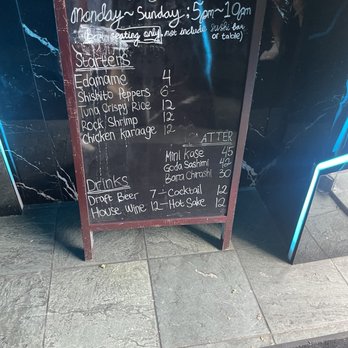 Monday ~ Sunday : 5pm ~ 10pm
(bar seating only, not include sushi bar
or table)
Starters
Edamame 4
Shishito Peppers 6-
Tuna Crispy Rice 12
Rock Shrimp 12
Chicken karaage 12
ATTER
Mini Kase 45
Goda Sashimi 42
Bara Chirashi 30
Drinks
Draft Beer 7 - Cocktail 12
House Wine 12 - Hot Sake 12